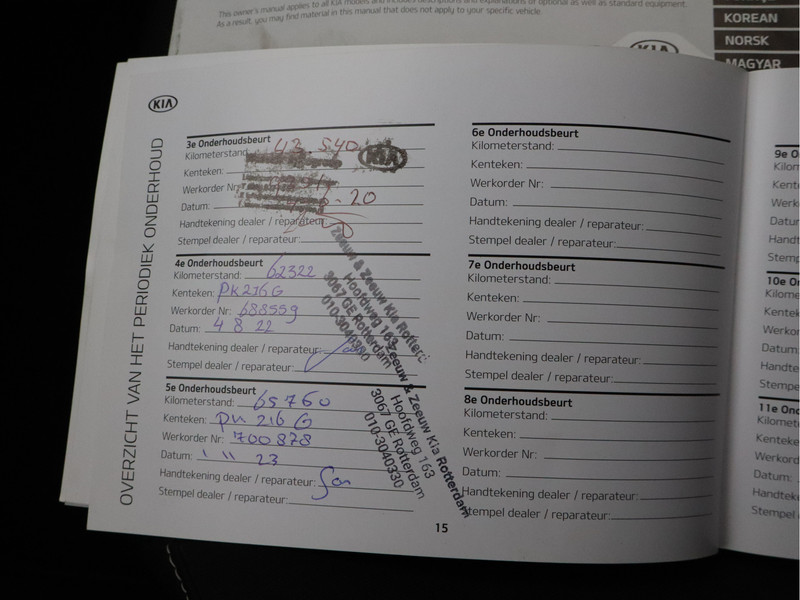 This owner's manual applies to all KIA models and includes descriptions and explanations of optional as well as standard equipment.
As a result, you may find material in this manual that does not apply to your specific vehicle.
KIA
KOREAN
NORSK
MAGYAR
KIA
OVERZICHT VAN HET PERIODIEK ONDERHOUD
3e Onderhoudsbeurt
Kilometerstand: 43.540
KIA
Kenteken:
Werkorder Nr:
Datum: 20
Handtekening dealer / reparateur:
Stempel dealer / reparateur:
4e Onderhoudsbeurt
Kilometerstand: 62322
Kenteken: PK216G
Werkorder Nr: 688559
Datum: 4 8 22
Handtekening dealer / reparateur:
Stempel dealer / reparateur:
Zeeuw & Zeeuw Kia Rotter
Hoofdweg 163
3067 GE Rotterdam
010-3040330
5e Onderhoudsbeurt
Kilometerstand: 65760
Kenteken: PK 216 G
Werkorder Nr: 700878
Datum: 23
Handtekening dealer / reparateur:
Stempel dealer / reparateur:
Zeeuw & Zeeuw Kia Rotterdam
Hoofdweg 163
3067 GE Rotterdam
010-3040330
6e Onderhoudsbeurt
Kilometerstand:
Kenteken:
Werkorder Nr:
Datum:
Handtekening dealer / reparateur:
Stempel dealer / reparateur:
7e Onderhoudsbeurt
Kilometerstand:
Kenteken:
Werkorder Nr:
Datum:
Handtekening dealer / reparateur:
Stempel dealer / reparateur:
8e Onderhoudsbeurt
Kilometerstand:
Kenteken:
Werkorder Nr:
Datum:
Handtekening dealer / reparateur:
Stempel dealer / reparateur:
15
9e O
Kilom
Kent
Werk
Datur
Handt
Stemp
10e O
Kilome
Kentek
Werko
Datum
Handte
Stempe
11e O
Kilomet
Kenteke
Werkord
Datum:
Handtek
Stempel